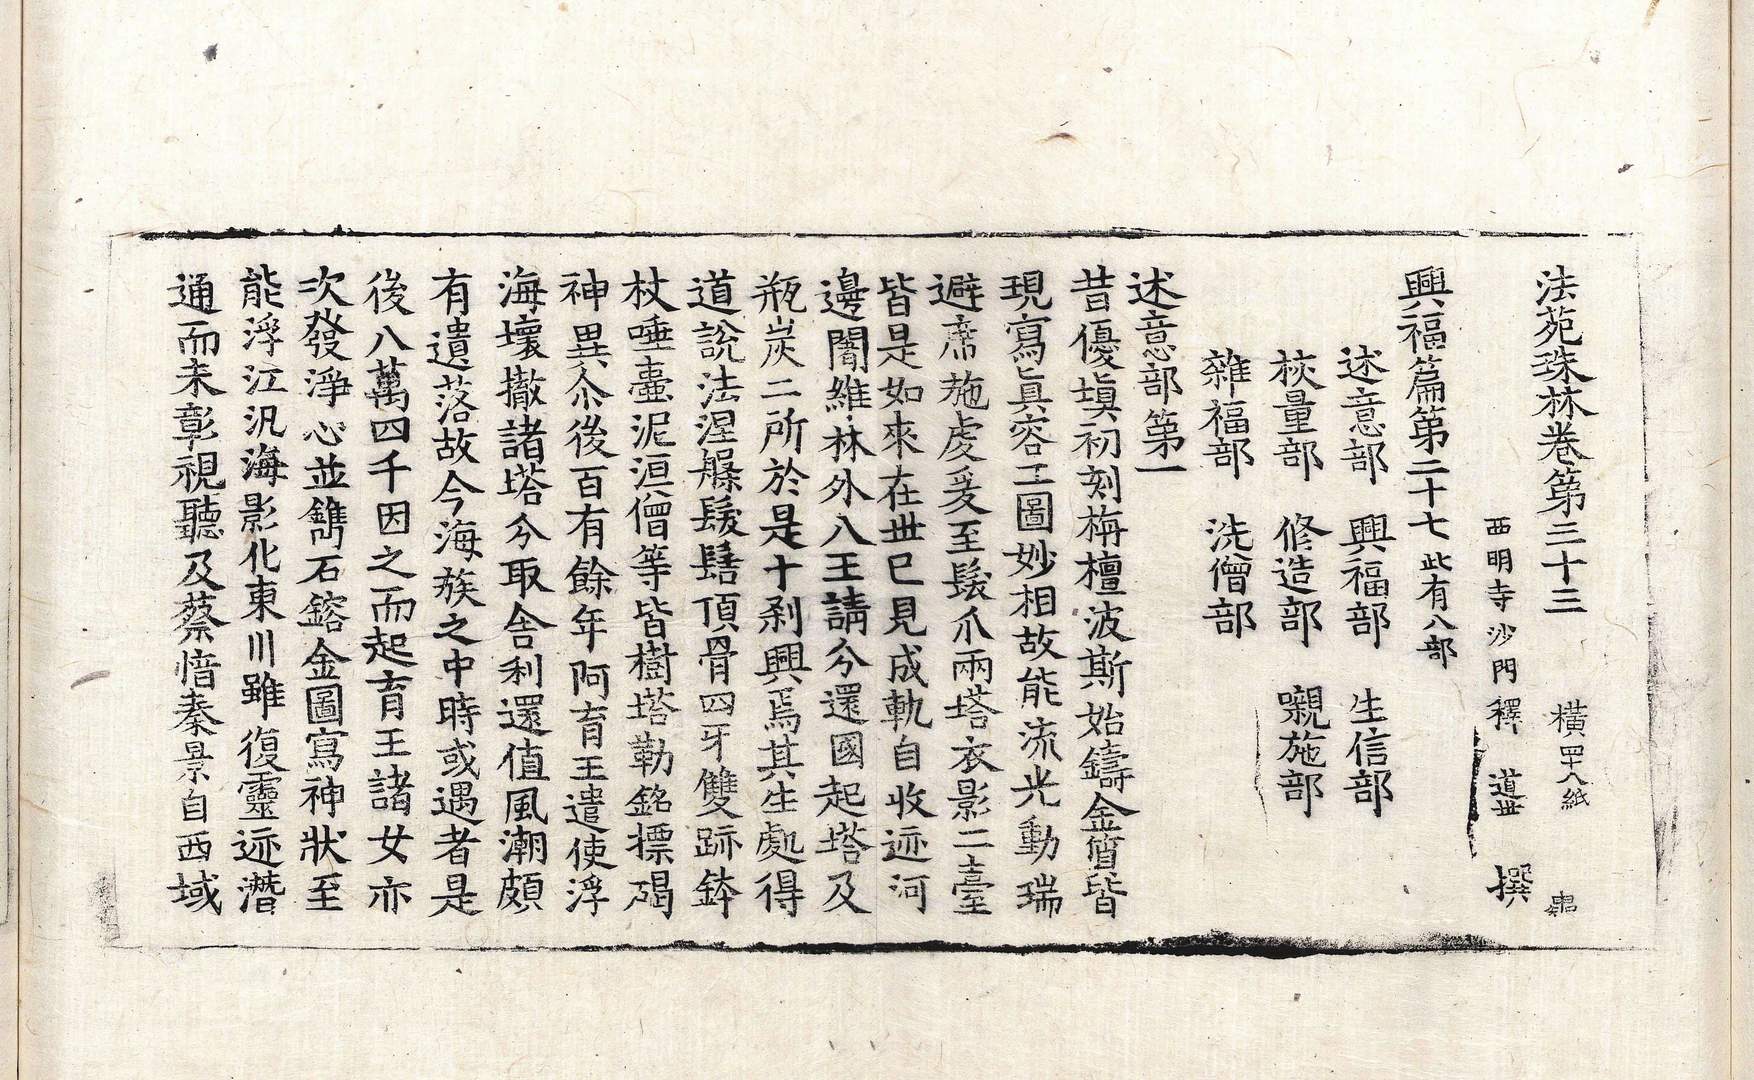 法苑珠林卷第三十三 橫四十八紙
西明寺沙門釋 道世 撰
興福篇第二十七 此有八部
述意部 興福部 生信部
校量部 修造部 嚫施部
雜福部 洗僧部
述意部第一
昔優塡初刻栴檀波斯始鑄金質皆
現寫眞容工圖妙相故能流光動瑞
避席施虔爰至髮爪兩塔衣影二臺
皆是如來在世已見成軌自收迹河
邊闍維林外八王請分還國起塔及
瓶炭二所於是十刹興焉其生處得
道說法涅槃髮髻頂骨四牙雙跡鉢
杖唾壺泥洹僧等皆樹塔勒銘摽碣
神異尒後百有餘年阿育王遣使浮
海壞撤諸塔分取舍利還値風潮頗
有遺落故今海族之中時或遇者是
後八萬四千因之而起育王諸女亦
次發淨心並鐫石鎔金圖寫神狀至
能浮江汎海影化東川雖復靈迹潛
通而未彰視聽及蔡愔秦景自西域